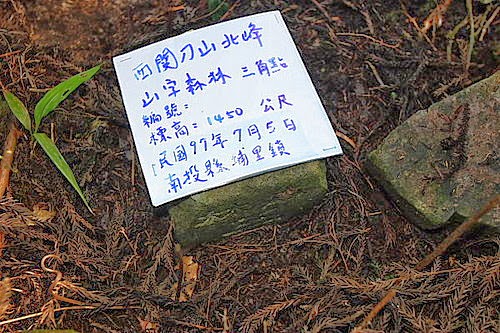 四関刀山北峰
山字森林 三角點
編號:
標高: 1450 公尺
民國99年7月5日
南投縣埔里鎮